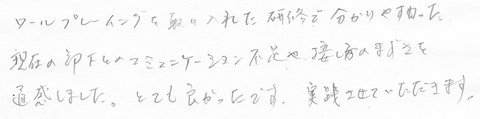 ロールプレーイングを取り入れた研修で分かりやすかった
現在の部下とのコミュニケーション不足や接し方のまずさを
通感しました。とても良かったです。実践させていただきます。